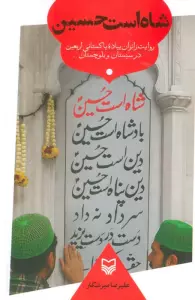 شاه است حسین
روایت زائران پیادهٔ پاکستانی اربعین
در سیستان و بلوچستان
شاه است حسین
بادشاه است حسین
دین است حسین
دین پناه است حسین
سر داد نه داد
دست در دست یزید
علیرضا میرشکار